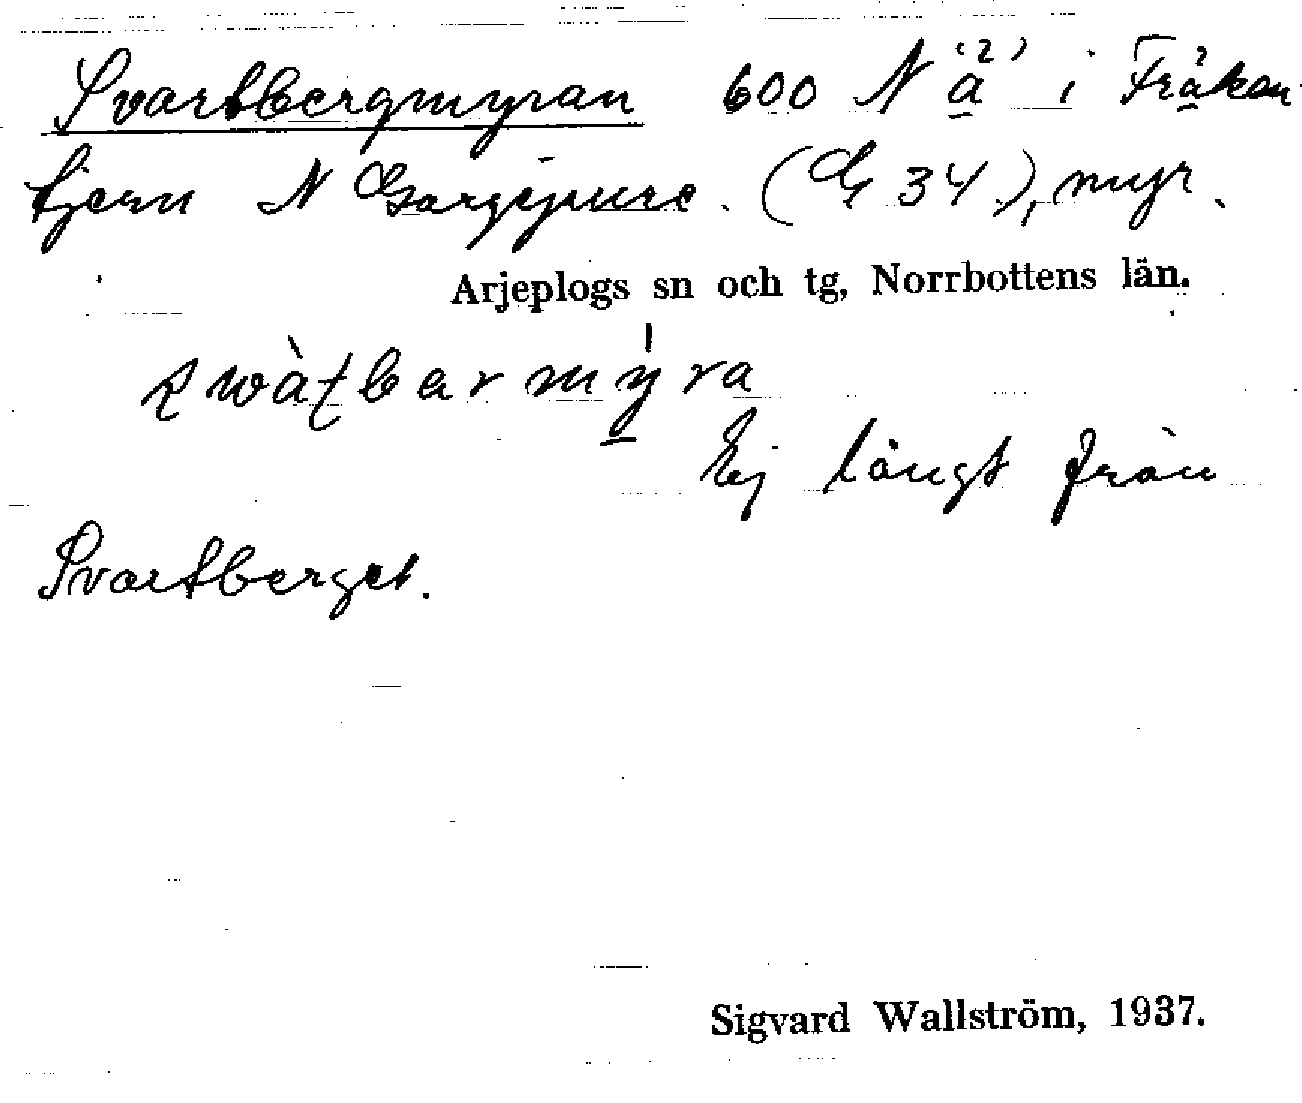 Svartbergmyran 600 N ä i Fräken
tjern N Gargejaure. (G 34), myr.
Arjeplogs sn och tg, Norrbottens län.
Ej långt från
Svartberget.
Sigvard Wallström, 1937.